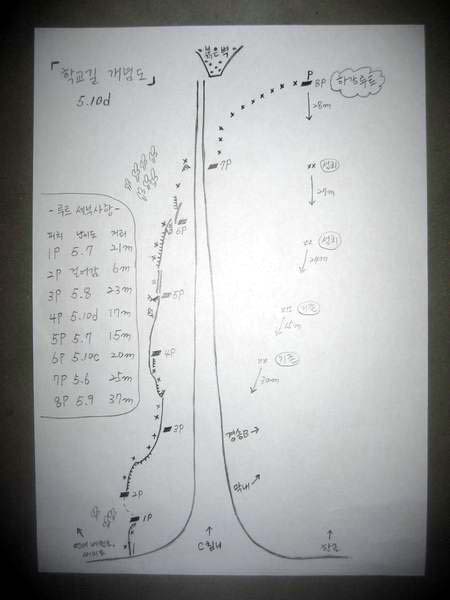 「학교길 개념도」
5.10d
붉은벽
P
8P
하강루트
28m
7P
설치
29m
6P
설치
24m
- 루트 세부사항 -
피치 난이도 거리
1P 5.7 21m
2P 걸어감 6m
3P 5.8 23m
4P 5.10d 17m
5P 5.7 15m
6P 5.10c 20m
7P 5.6 25m
8P 5.9 37m
5P
기존
4P
기존
30m
3P
경송B→
2P
막내
1P
C침니